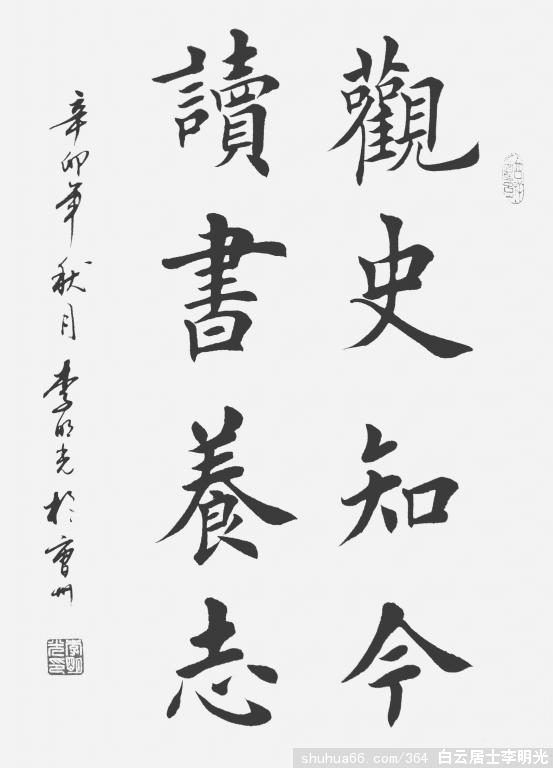 觀史知今
讀書養志
辛卯年秋月李明光於曹州
shuhua66.com/364 白云居士李明光